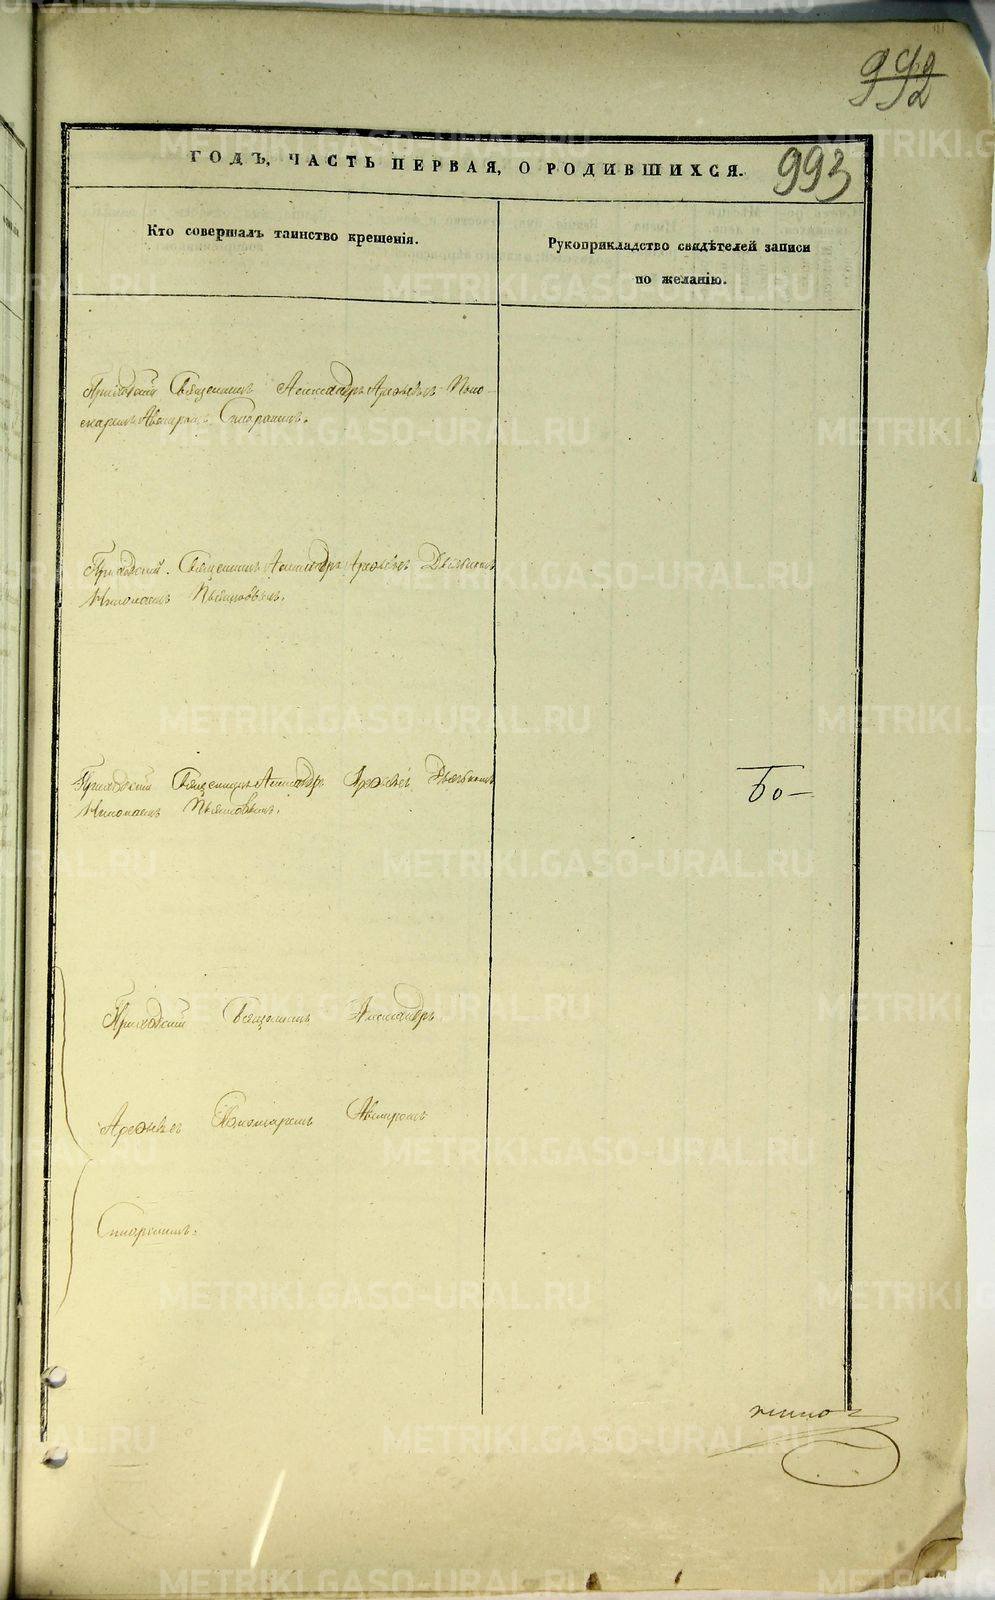 992
993
ГОДЪ, ЧАСТЬ ПЕРВАЯ, О РОДИВШИХСЯ.
Кто совершалъ таинство крещенія.
Рукоприкладство свидѣтелей записи
по желанію.
Приходскій Священникъ Александръ Арефьевъ Поно-
маремъ Стараринъ.
Приходскій Священникъ Александръ Арефьевъ Дьячкомъ
Николаемъ
Приходскій Священникъ Александръ Арефьевъ Дьячкомъ
Николаемъ
Бо-
Приходскій Священникъ Александръ
Арефьевъ Пономаремъ
METRIKI.GASO-URAL.RU